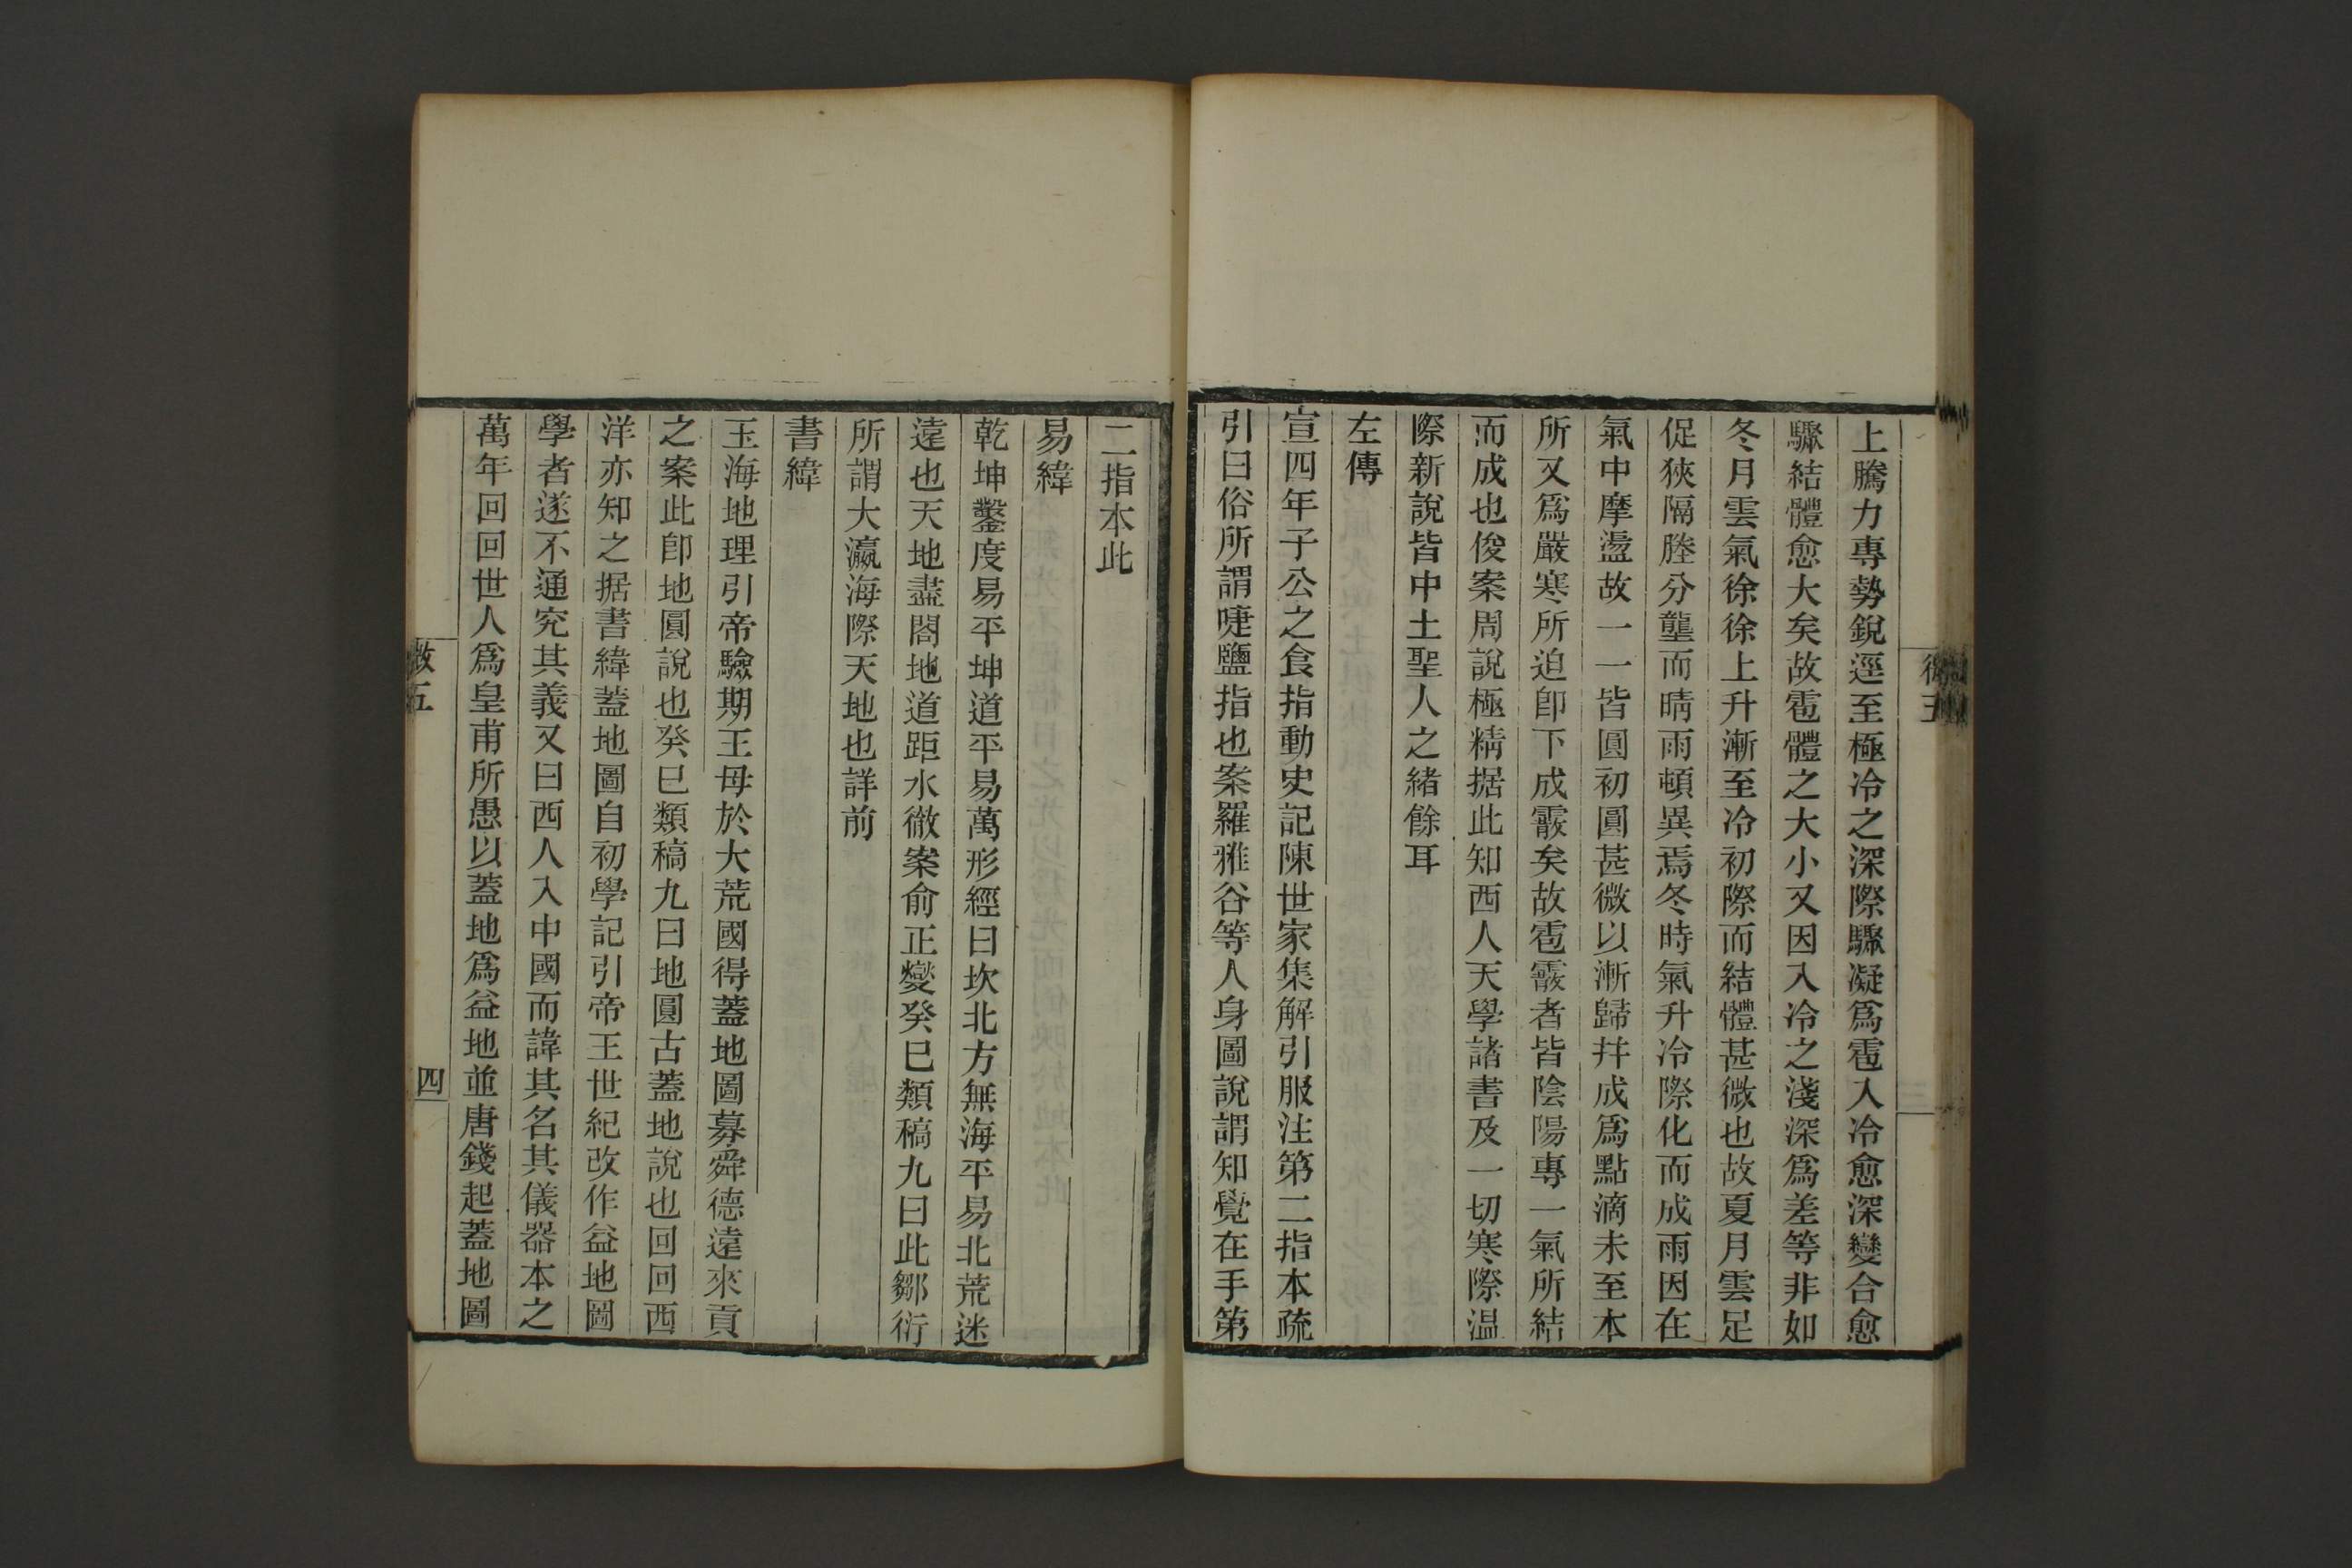 上騰力專勢銳逕至極冷之深際驟凝爲雹入冷愈深變合愈
驟結體愈大矣故雹體之大小又因入冷之淺深爲差等非如
冬月雲氣徐徐上升漸至冷初際而結體甚微也故夏月雲足
促狹隔塍分壟而晴雨頓異焉冬時氣升冷際化而成雨因在
氣中摩盪故一一皆圓初圓甚微以漸歸并成爲點滴未至本
所又爲嚴寒所迫卽下成霰矣故雹霰者皆陰陽專一氣所結
而成也俊案周說極精据此知西人天學諸書及一切寒際温
際新說皆中土聖人之緒餘耳
左傳
宣四年子公之食指動史記陳世家集解引服注第二指本疏
引曰俗所謂啑鹽指也案羅雅谷等人身圖說謂知覺在手第
二指本此
易緯
乾坤鑿度易平坤道平易萬形經曰坎北方無海平易北荒迷
遠也天地盡閤地道距水徹案俞正燮癸巳類稿九曰此鄒衍
所謂大瀛海際天地也詳前
書緯
玉海地理引帝驗期王母於大荒國得蓋地圖慕舜德遠來貢
之案此卽地圓說也癸巳類稿九曰地圓古蓋地說也回回西
洋亦知之据書緯蓋地圖自初學記引帝王世紀改作益地圖
學者遂不通究其義又曰西人入中國而諱其名其儀器本之
萬年回回世人爲皇甫所愚以蓋地爲益地並唐錢起蓋地圖
四